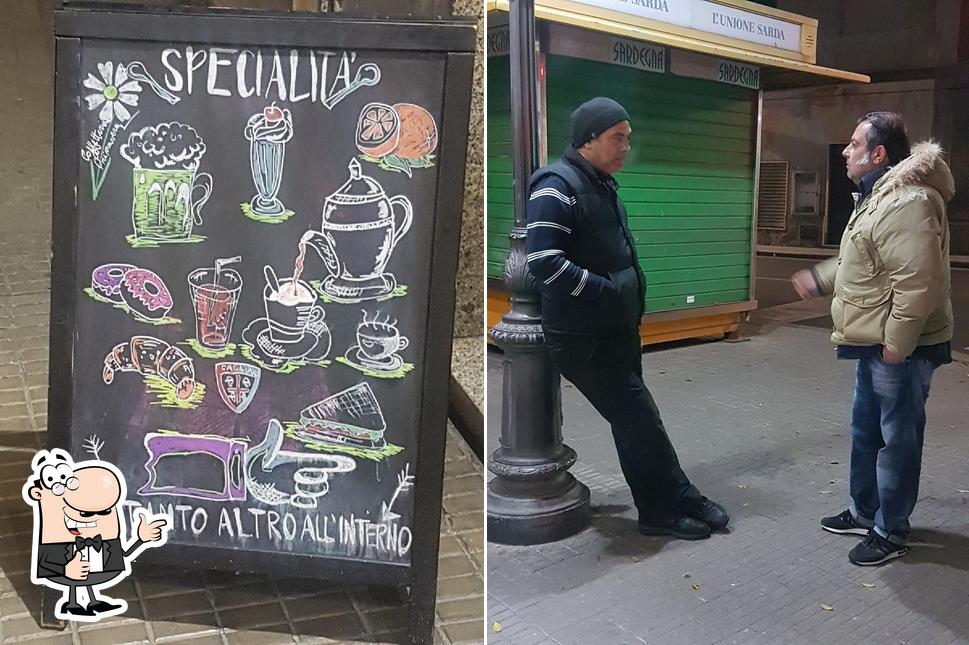 SPECIALITA'
CAGLIARI
TANTO ALTRO ALL'INTERNO
E SARDA
L'UNIONE SARDA
EGNA
SARDEGNA
SARDEGNA